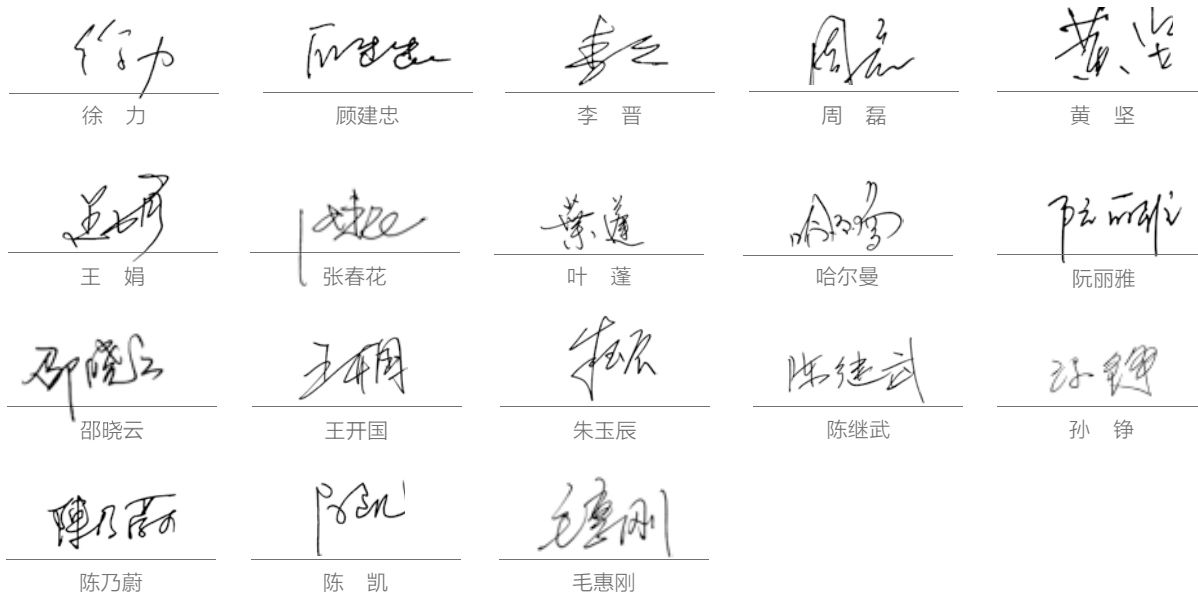 徐 力 顾建忠 李 晋 周 磊 黄 坚
王 娟 张春花 叶 蓬 哈尔曼 阮丽雅
邵晓云 王开国 朱玉辰 陈继武 孙 铮
陈乃蔚 陈 凯 毛惠刚